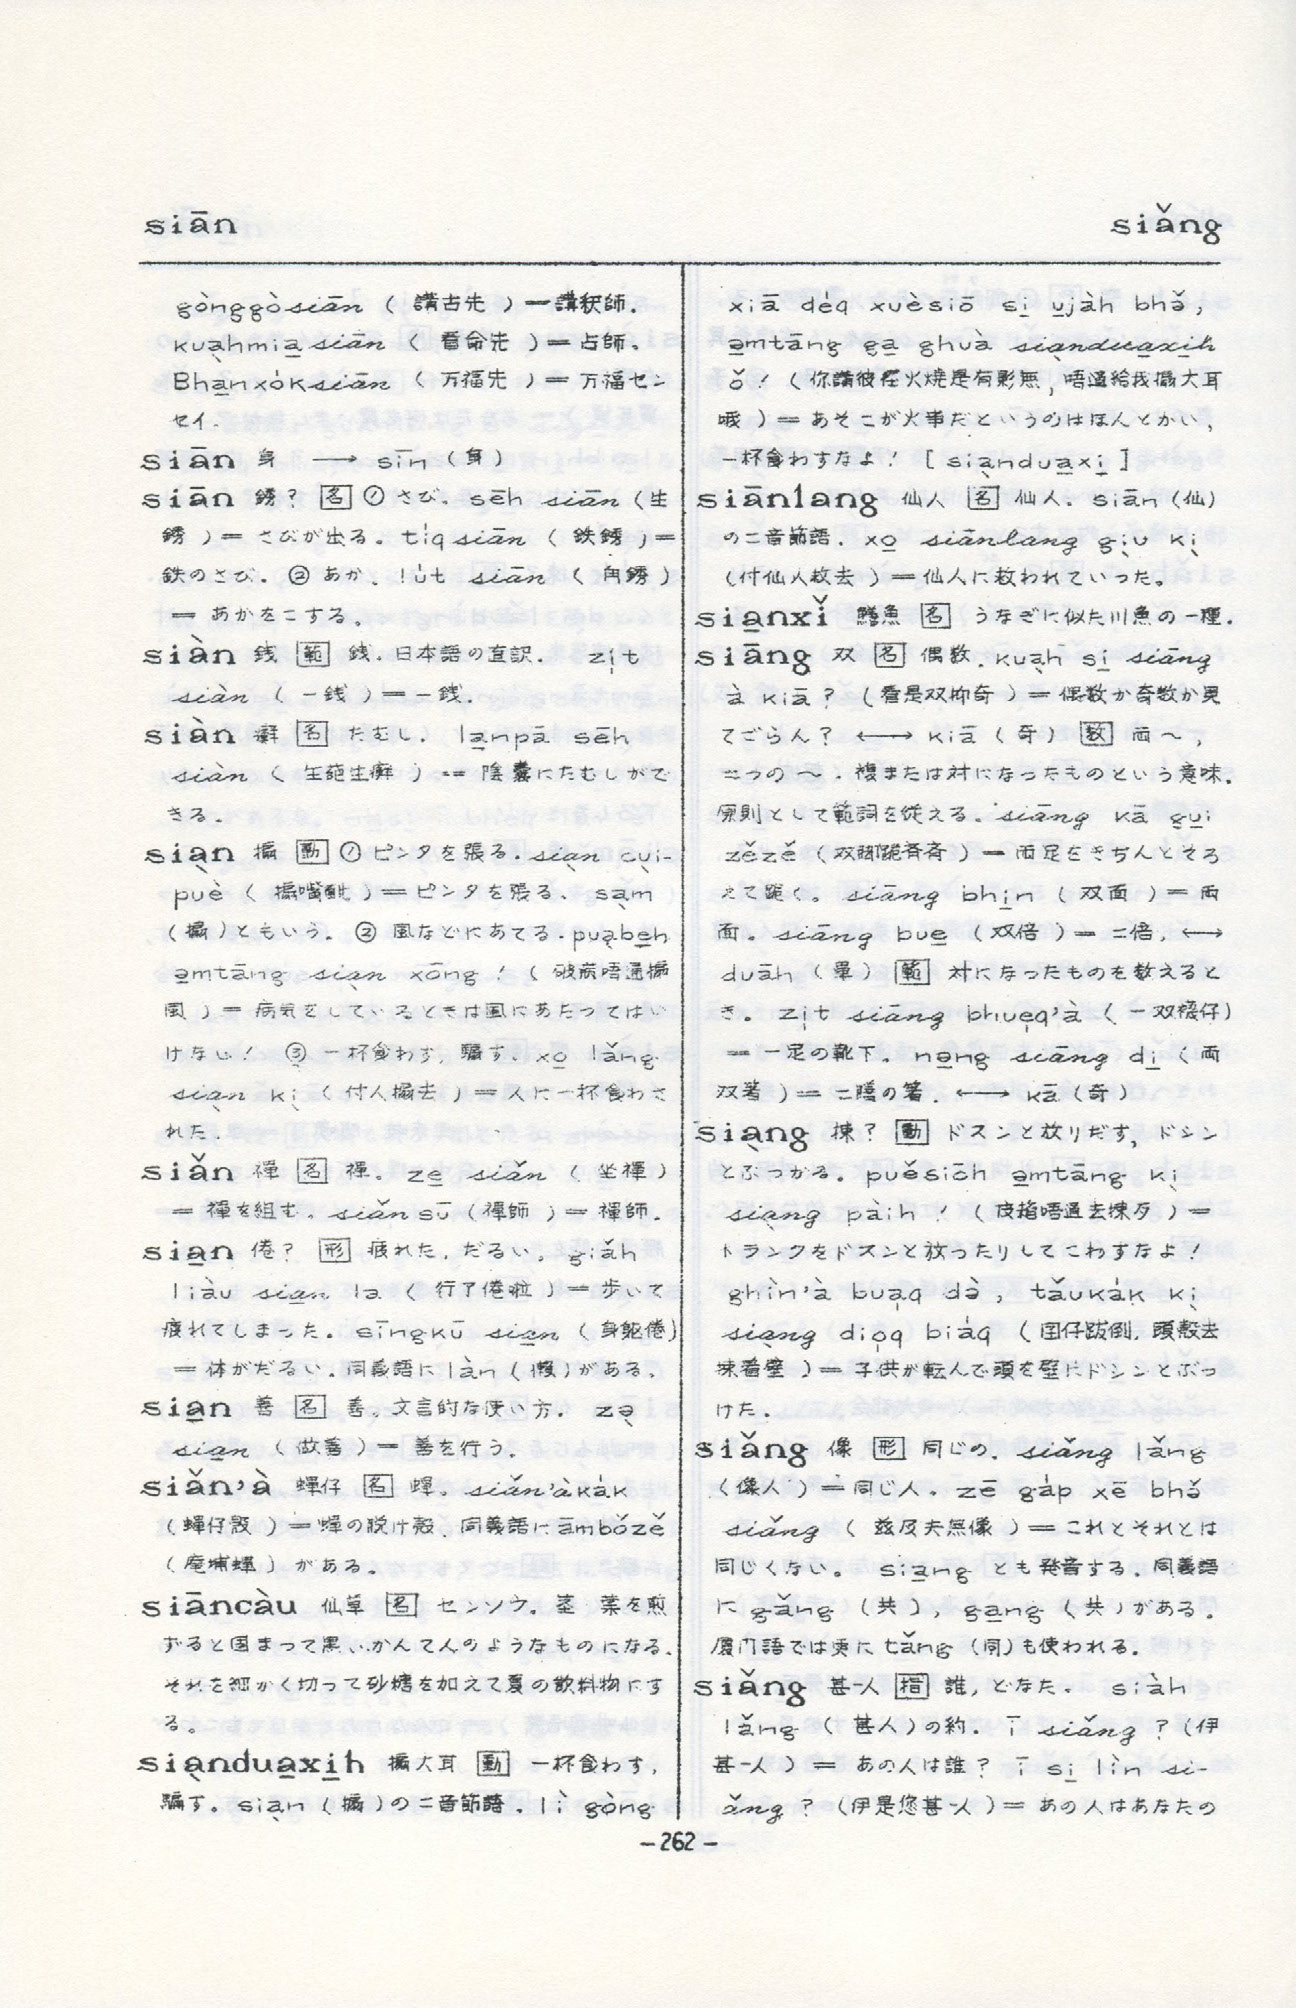 siān
siǎng
gònggòsiān（講古先）＝講釈師．
kuạhmia̲siān（看命先）＝占師．
Bha̲nxo̍ksiān（万福先）＝万福セン
セイ．
siān 身 ⟶ sīn（身）
siān 銹？ [名] ①さび．sēh siān（生
銹）＝さびが出る。tiqsiān（鉄銹）＝
鉄のさび．②あか．lu̍t siān（角銹）
＝あかをこする。
siàn 銭 [範] 銭．日本語の直訳． zi̍t
siàn（一銭）＝一銭．
siàn 癬 [名] たむし． la̲npā sēh
siàn（生癬）＝陰嚢にたむしがで
きる．
siạn 搧 [動] ①ビンタを張る．siạn cụi-
puè（搧嘴）＝ビンタを張る． sạm
（搧）ともいう．②風などにあてる．puạbe̲h
a̲mtāng siạn xōng！（破病唔通搧
風）＝病気をしているときは風にあたってはい
けない！ ③一杯食わす，騙す．xo̲ lǎng
siạn kị（付人搧去）＝人に一杯食わさ
れた．
siǎn 禪 [名] 禪．ze̲ siǎn（坐禪）
＝禪を組む．siǎnsū（禪師）＝禪師．
sia̲n 倦？ [形] 疲れた，だるい．giǎh
liàu sia̲n la（行了倦啦）＝歩いて
疲れてしまった．sīngkū sia̲n（身軀倦）
＝体がだるい．同義語にlàn（懶）がある．
sia̲n 善 [名] 善。文言的な使い方． zọ
sia̲n（做善）＝善を行う．
siǎn'à 蟬仔 [名] 蟬．siǎn'àka̍k
（蟬仔殼）＝蟬の脱け殼．同義語にāmbǒzě
（庵埔蟬）がある．
siāncàu 仙草 [名] センソウ．茎 葉を煎
ずると固まって黒いかんて人のようなものになる．
それを細かく切って砂糖を加えて夏の飲料物にす
る。
siạndua̲xi̲h 搧大耳 [動] 一杯食わす，
騙す．siạn（搧）の二音節語．lì gòng
xiā de̍q xuèsiō si̲ u̲jạh bhǎ，
a̲mtāng ga̲ ghuà siạndua̲xi̲h
ǒ！（你講彼搾火燒是有影無，唔通給我搧大耳
哦）＝あそこが火事だというのはほんとかい，
一杯食わすなよ！ [siạndua̲xi̲]
siānlang 仙人 [名] 仙人．siān（仙）
の二音節語．xo̲ siānlang gịu kị
（付仙人救去）＝仙人に救われていった。
sia̲nxǐ 鱔魚 [名] うなぎに似た川魚の一種．
siāng 双 [名] 偶数．kuạh si̲ siāng
à kiā？（看是双抑奇）＝偶数か奇数か見
てごらん？ ⟷ kiā（奇） [数] 両～，
二つの～．複または対になったものという意味．
原則として範詞を従える．siāng kā gu̲i
zězě（双脚跪齊齊）＝両足をきちんとそろ
えて跪く。siāng bhi̲n（双面）＝両
面。siāng bue̲（双倍）＝二倍，⟷
duāh（單） [範] 対になったものを数えると
き。zi̍t siāng bhuẹq'à（一双襪仔）
＝一足の靴下．no̲ng siāng di̲（両
双箸）＝二膳の箸．⟷ kā（奇）
siạng 揀？ [動] ドスンと放りだす，ドシン
とぶつかる．puěsiōh a̲mtāng kị
siạng pàih！（皮箱唔通去揀歹）＝
トランクをドスンと放ったりしてこわすなよ！
ghìn'à bua̍q dò，tǎuka̍k kị
siạng dio̍q bia̍q（囝仔跋倒，頭殼去
揀着壁）＝子供が転んで頭を壁にドシンとぶっ
けた．
siǎng 像 [形] 同じの．siǎng lǎng
（像人）＝同じ人．zē ga̍p xē bhǒ
siǎng（茲及夫無像）＝これとそれとは
同じくない。 sia̲ng とも発音する．同義語
に gǎng（共），ga̲ng（共）がある。
厦門語では更に tǎng（同）も使われる．
siǎng 甚人 [指] 誰，どなた． siàh
lǎng（甚人）の約．ī siǎng？（伊
甚人）＝あの人は誰？ ī si̲ lìn si-
ǎng？（伊是您甚人）＝あの人はあなたの
－262－